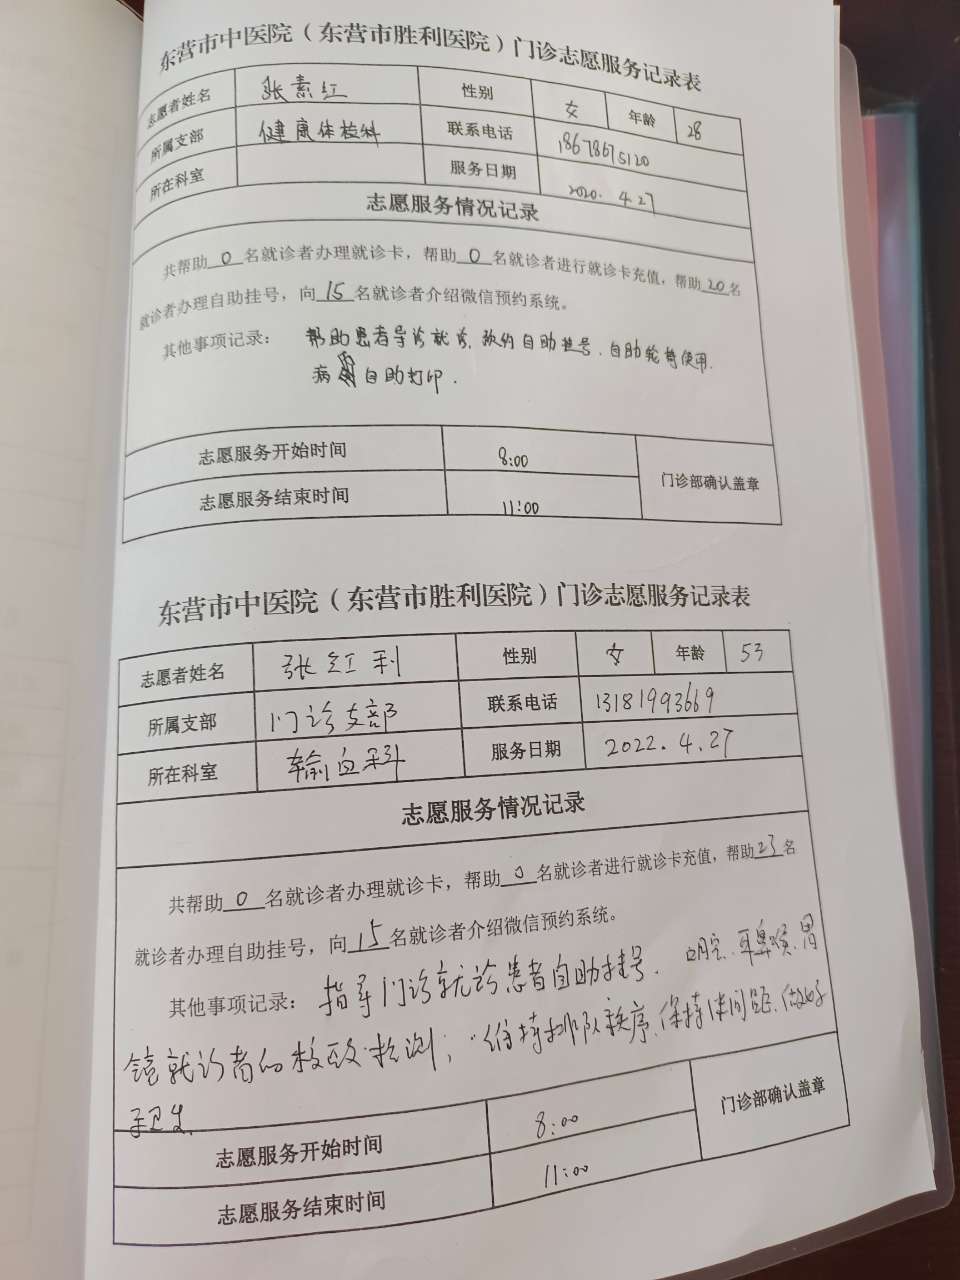 东营市中医院（东营市胜利医院）门诊志愿服务记录表
志愿者姓名 张素红 性别 女 年龄 28
所属支部 健康体检科 联系电话 18678675120
所在科室 服务日期 2020.4.27
志愿服务情况记录
共帮助0名就诊者办理就诊卡，帮助0名就诊者进行就诊卡充值，帮助20名
就诊者办理自助挂号，向15名就诊者介绍微信预约系统。
其他事项记录： 帮助患者导诊就诊、预约自助挂号、自助轮椅使用.
病 自助打印.
志愿服务开始时间 8:00
门诊部确认盖章
志愿服务结束时间 11:00
东营市中医院（东营市胜利医院）门诊志愿服务记录表
志愿者姓名 张红利 性别 女 年龄 53
所属支部 门诊支部 联系电话 13181993669
所在科室 输血科 服务日期 2022.4.27
志愿服务情况记录
共帮助0名就诊者办理就诊卡，帮助0名就诊者进行就诊卡充值，帮助23名
就诊者办理自助挂号，向15名就诊者介绍微信预约系统。
其他事项记录： 指导门诊就诊患者自助挂号. 耳鼻喉.胃
镜就诊者的核酸检测；维持排队秩序.保持体间距.做好
手卫生.
志愿服务开始时间 8:00
门诊部确认盖章
志愿服务结束时间 11:00